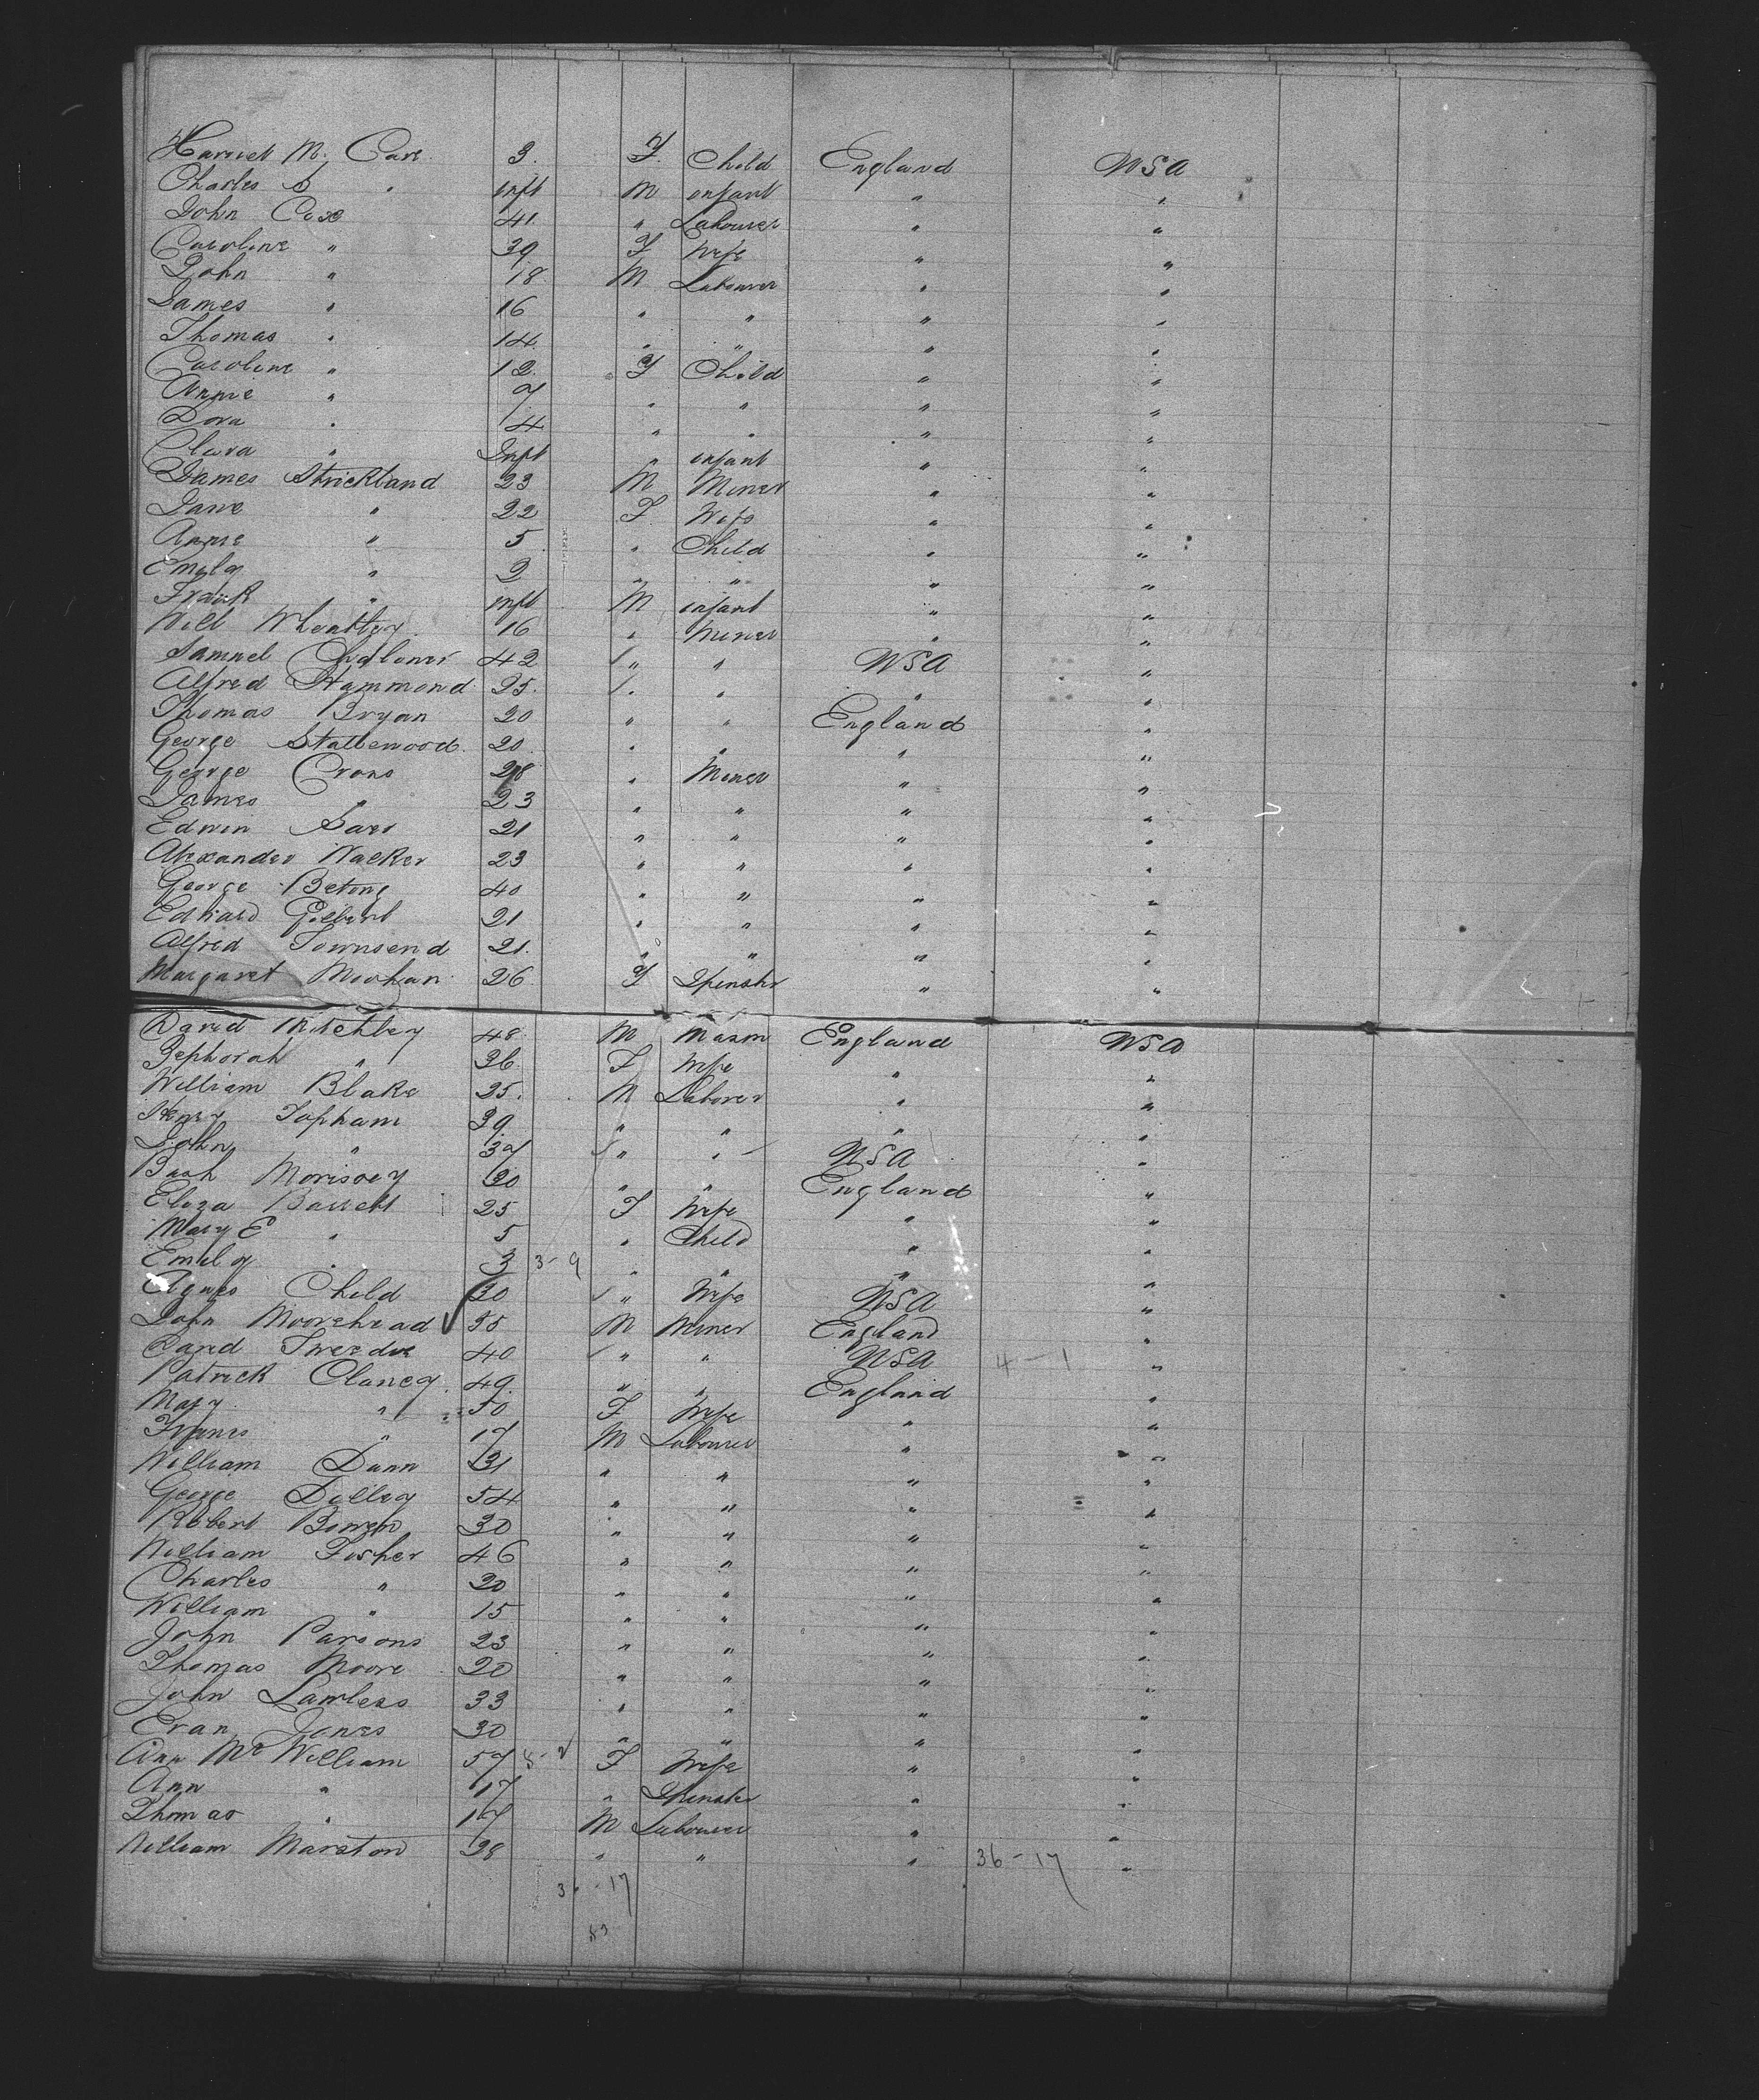 Harriet M. Care 3. F. Child England USA
Charles S " Inft M infant " "
John Cox 41. " Labourer " "
Caroline " 39 F Wife " "
John " 18 M Labourer " "
James " 16 " " " "
Thomas " 14. " " " "
Caroline " 12. F Child " "
Annie " 7 " " " "
Dora " 4 " " " "
Clara " Inft " infant " "
James Strickland 23 M Miner " "
Jane " 22 F. Wife " "
Annie " 5 " Child " "
Emily " 2 " " " "
Fredk " inft M infant " "
Will Wheatley 16 " Miner " "
Samuel Chaloner 42 " " USA "
Alfred Hammond 25. " " " "
Thomas Bryan 20 " " England "
George Stallewood. 20. " " " "
George Crons 28 " Miner " "
James " 23 " " " "
Edwin 21 " " " "
Alexander Walker 23 " " " "
George Betong 40 " " " "
Edward Gilbert 21 " " " "
Alfred Townsend 21. " " " "
Margaret Meehan 26 F Spinster " "
David Mitchley 48. M Mason England USA
Zephorah " 36. F Wife " "
William Blake 25. M Laborer " "
Henry Topham 39 " " " "
John " 37 " " USA "
Bash Morissey 20 " " England "
Eliza Barrett 25 F Wife " "
Mary E " 5 " Child " "
Emily " 3 3-9 " " " "
Agnes Child 30 " Wife USA "
John Moorehead 35 M Miner England "
David Tweedie 40 " " USA 4-1 "
Patrick Clancy 49. " " England "
Mary " 50 F Wife " "
" 17 M Labourer " "
William Dunn 31 " " " "
George Dilley 54 " " " "
Robert Bowen 30 " " " "
William Fisher 46 " " " "
Charles " 20 " " " "
William " 15 " " " "
John Parsons 23 " " " "
Thomas Moore 20 " " " "
John Lawless 33 " " " "
Evan Jones 30 " " " "
Ann Mc William 57 F Wife " "
Ann " 17 " Spinster " "
Thomas " 17 M Labourer " "
William Marston 28 " " " 36-17 "
36-17
53